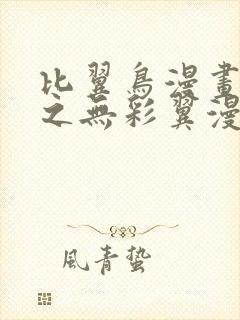 比翼鳥漫畫
之無彩翼漫
風青蟄